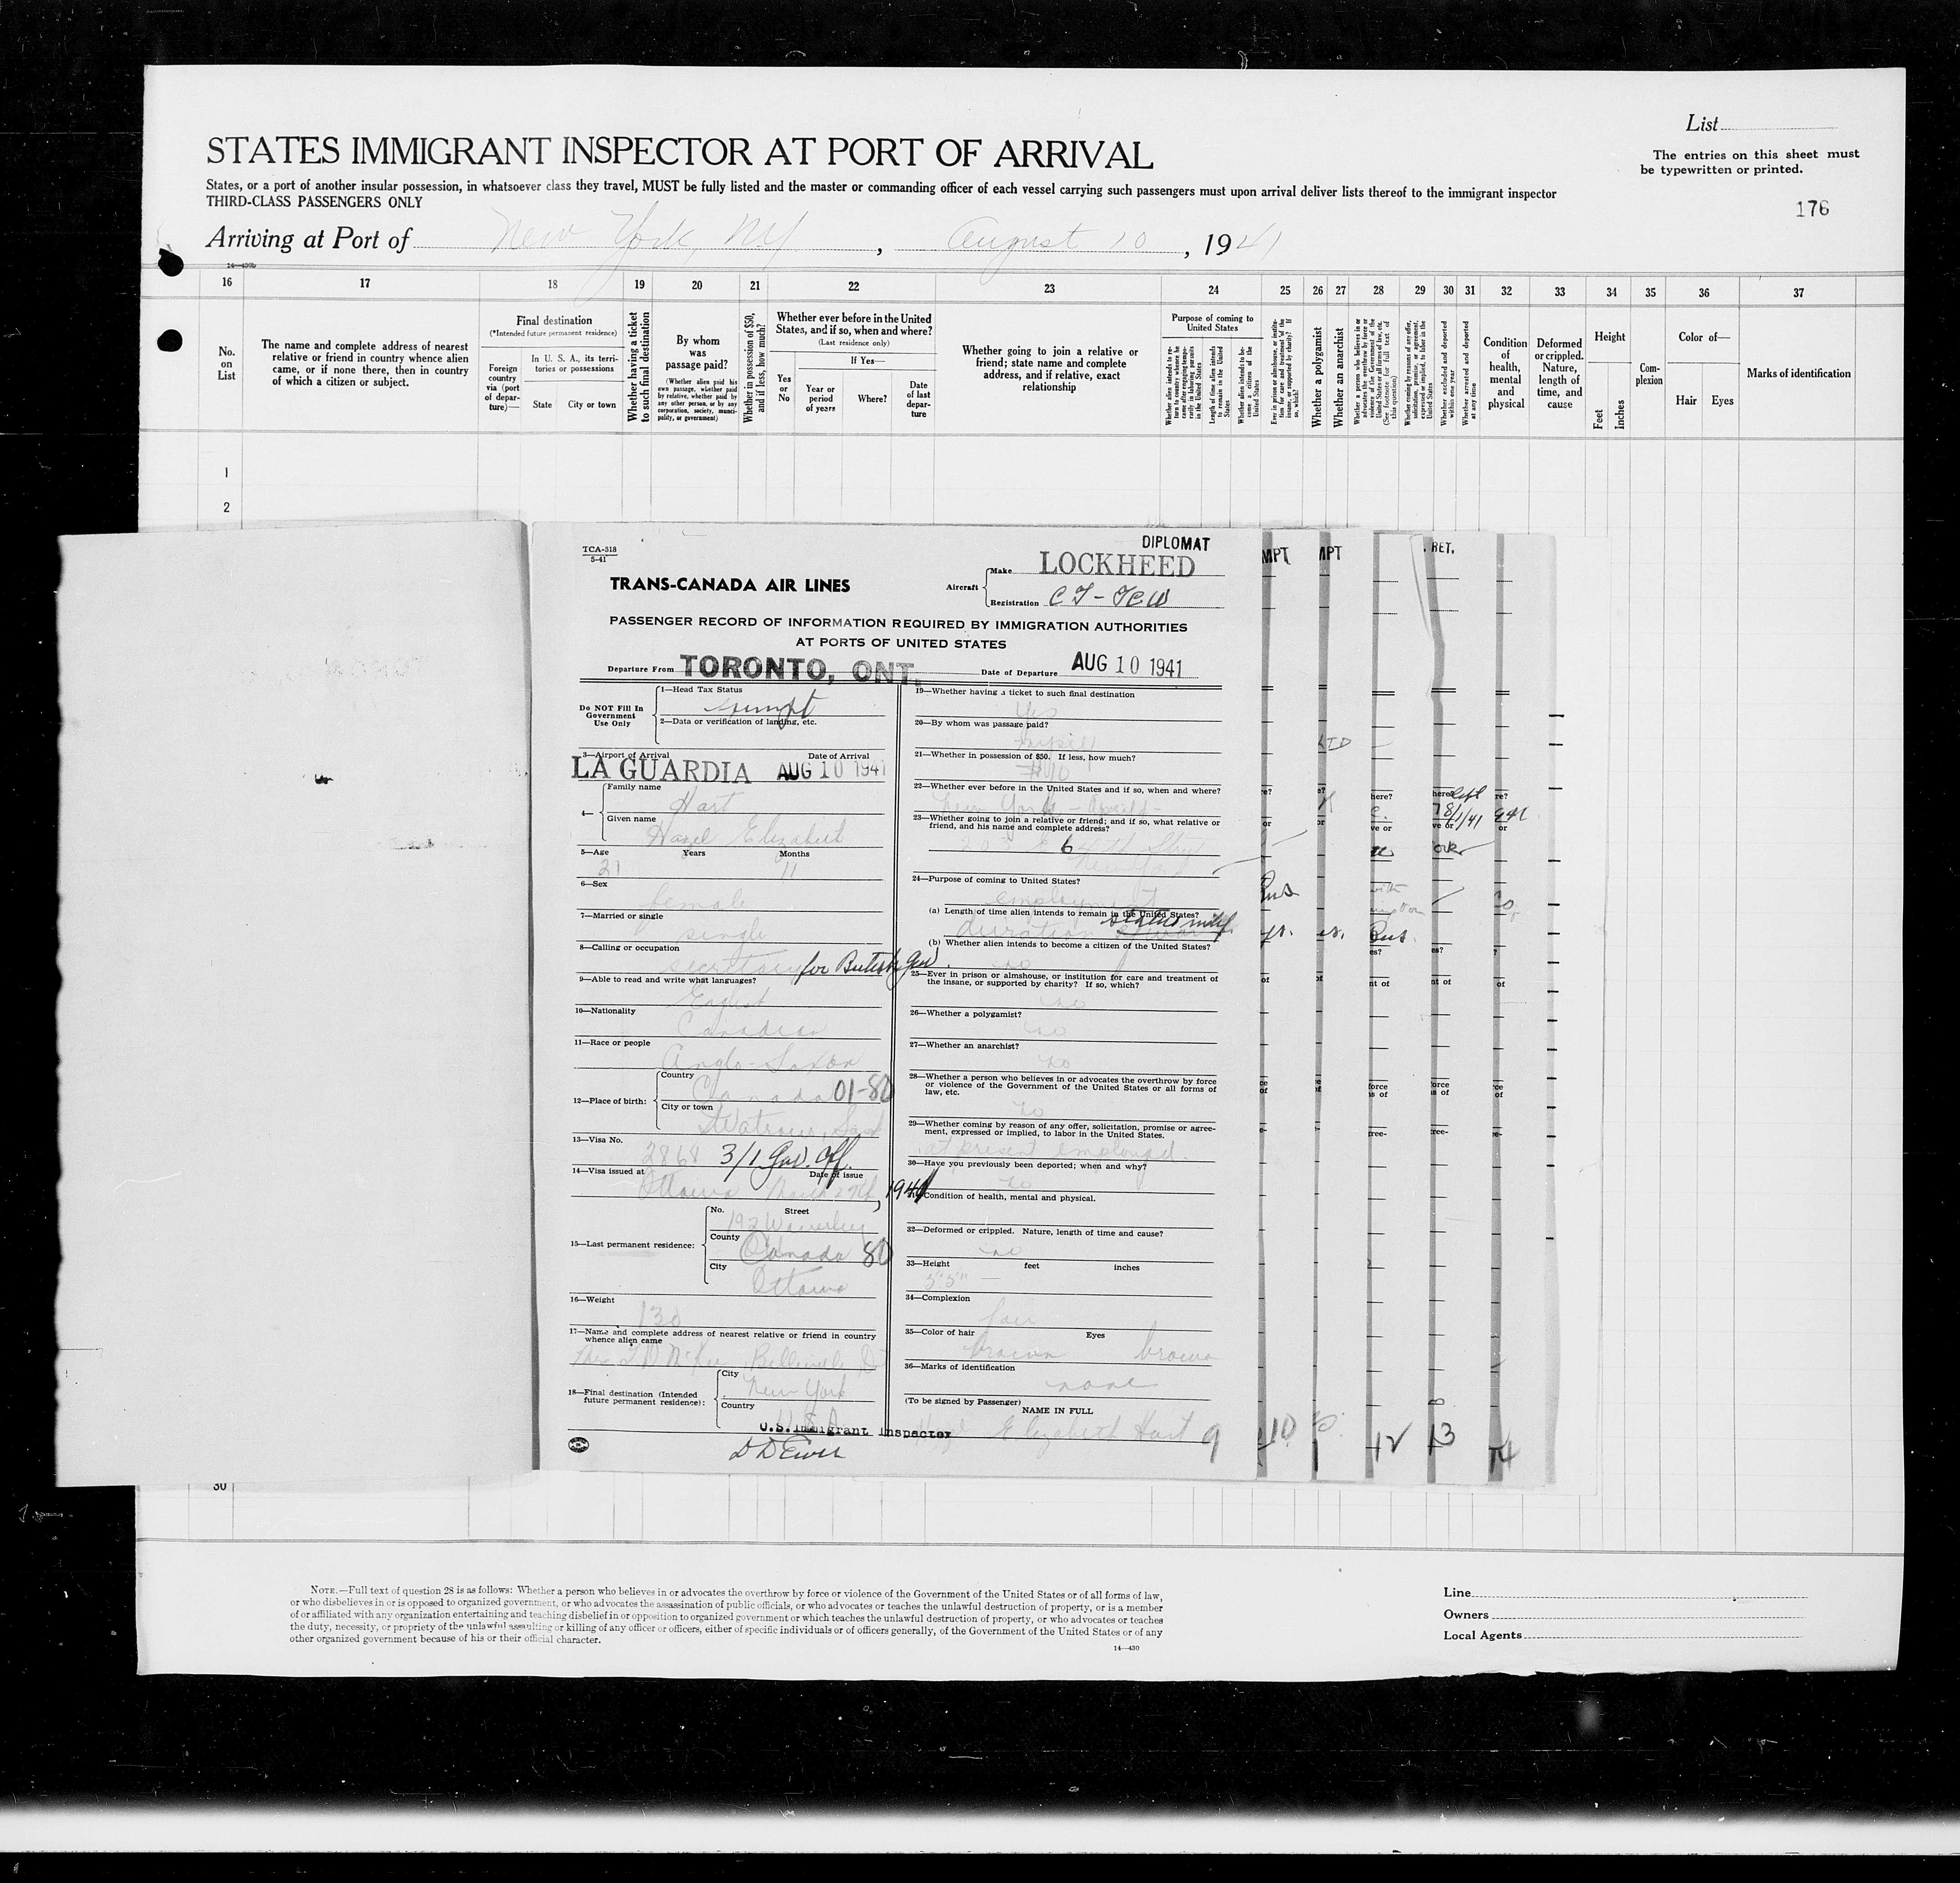 List
STATES IMMIGRANT INSPECTOR AT PORT OF ARRIVAL
The entries on this sheet must
be typewritten or printed.
States, or a port of another insular possession, in whatsoever class they travel, MUST be fully listed and the master or commanding officer of each vessel carrying such passengers must upon arrival deliver lists thereof to the immigrant inspector
THIRD-CLASS PASSENGERS ONLY
176
Arriving at Port of New York, NY, August 10, 1941
16 17 18 19 20 21 22 23 24 25 26 27 28 29 30 31 32 33 34 35 36 37
No. on List
The name and complete address of nearest
relative or friend in country whence alien
came, or if none there, then in country
of which a citizen or subject.
Final destination
(*Intended future permanent residence)
Foreign country via (port of departure)—
In U. S. A., its territories or possessions
State City or town
Whether having a ticket to such final destination
By whom was passage paid?
(Whether alien paid his own passage, whether paid by relative, whether paid by any other person, or by any corporation, society, municipality, or government)
Whether in possession of $50, and if less, how much?
Whether ever before in the United
States, and if so, when and where?
(Last residence only)
Yes or No
If Yes—
Year or period of years
Where?
Date of last departure
Whether going to join a relative or
friend; state name and complete
address, and if relative, exact
relationship
Purpose of coming to United States
Length of time alien intends to remain in the United States
Whether alien intends to become a citizen of the United States
Whether a polygamist
Whether an anarchist
Whether excluded and deported within one year
Whether arrested and deported at any time
Condition of health, mental and physical
Deformed or crippled. Nature, length of time, and cause
Height
Feet Inches
Complexion
Color of—
Hair Eyes
Marks of identification
1
2
TCA-518
5-41
DIPLOMAT
TRANS-CANADA AIR LINES
Aircraft
Make LOCKHEED
Registration CF-TCW
PASSENGER RECORD OF INFORMATION REQUIRED BY IMMIGRATION AUTHORITIES
AT PORTS OF UNITED STATES
Departure From TORONTO, ONT. Date of Departure AUG 10 1941
Do NOT Fill In Government Use Only
1—Head Tax Status
Exempt
2—Data or verification of landing, etc.
3—Airport of Arrival Date of Arrival
LA GUARDIA AUG 10 1941
4— Family name
Hart
Given name
Hazel Elizabeth
5—Age Years Months
21 11
6—Sex
female
7—Married or single
single
8—Calling or occupation
secretary for British Gov.
9—Able to read and write what languages?
English
10—Nationality
Canadian
11—Race or people
Anglo-Saxon
12—Place of birth:
Country
Canada 01-80
City or town
Watrous, Sask
13—Visa No.
2868 3/1 Gov. Off.
14—Visa issued at Date of issue
Ottawa March 1941
15—Last permanent residence:
No. Street
192 Waverley
County
Canada 80
City
Ottawa
16—Weight
130
17—Name and complete address of nearest relative or friend in country
whence alien came
Belleville
18—Final destination (Intended future permanent residence):
City
New York
Country
U.S.A.
U.S. Immigrant Inspector
19—Whether having a ticket to such final destination
Yes
20—By whom was passage paid?
21—Whether in possession of $50. If less, how much?
22—Whether ever before in the United States and if so, when and where?
New York
23—Whether going to join a relative or friend; and if so, what relative or
friend, and his name and complete address?
New York
24—Purpose of coming to United States?
employment
(a) Length of time alien intends to remain in the United States?
duration
(b) Whether alien intends to become a citizen of the United States?
no
25—Ever in prison or almshouse, or institution for care and treatment of
the insane, or supported by charity? If so, which?
no
26—Whether a polygamist?
no
27—Whether an anarchist?
no
28—Whether a person who believes in or advocates the overthrow by force
or violence of the Government of the United States or all forms of
law, etc.
no
29—Whether coming by reason of any offer, solicitation, promise or agree-
ment, expressed or implied, to labor in the United States.
at present employed.
30—Have you previously been deported; when and why?
no
31—Condition of health, mental and physical.
32—Deformed or crippled. Nature, length of time and cause?
no
33—Height feet inches
5'5"
34—Complexion
fair
35—Color of hair Eyes
brown brown
36—Marks of identification
none
(To be signed by Passenger)
NAME IN FULL
Hazel Elizabeth Hart
9 10 12 13 14
30
NOTE.—Full text of question 28 is as follows: Whether a person who believes in or advocates the overthrow by force or violence of the Government of the United States or of all forms of law,
or who disbelieves in or is opposed to organized government, or who advocates the assassination of public officials, or who advocates or teaches the unlawful destruction of property, or is a member
of or affiliated with any organization entertaining and teaching disbelief in or opposition to organized government or which teaches the unlawful destruction of property, or who advocates or teaches
the duty, necessity, or propriety of the unlawful assaulting or killing of any officer or officers, either of specific individuals or of officers generally, of the Government of the United States or of any
other organized government because of his or their official character.
14—430
Line
Owners
Local Agents